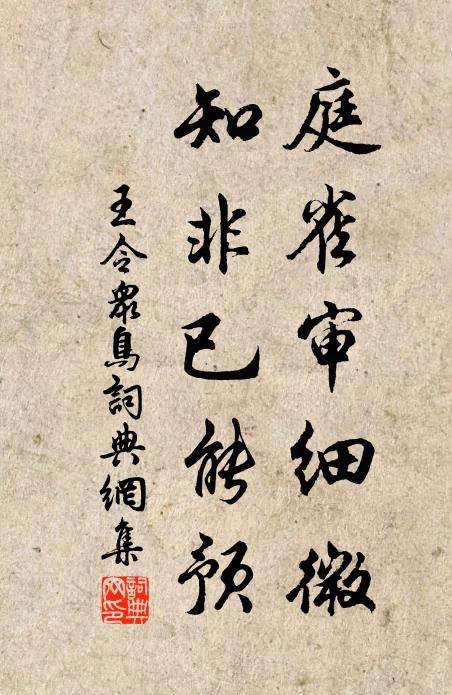 庭雀审细微
知非已能预
王令眾鳥詞典網集
詞典網印